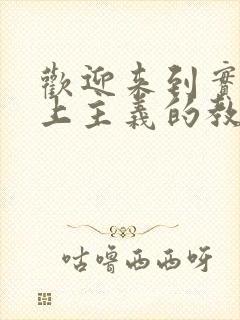 歡迎来到實
上主義的教
咕嚕西西呀